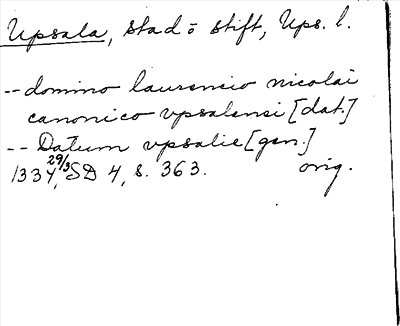 Upsala, stad o stift, Ups. l.
-- domino laurencio nicolai
canonico vpsalensi [dat.]
-- Datum vpsalie [gen.]
1334 29/3, SD 4, s. 363. orig.